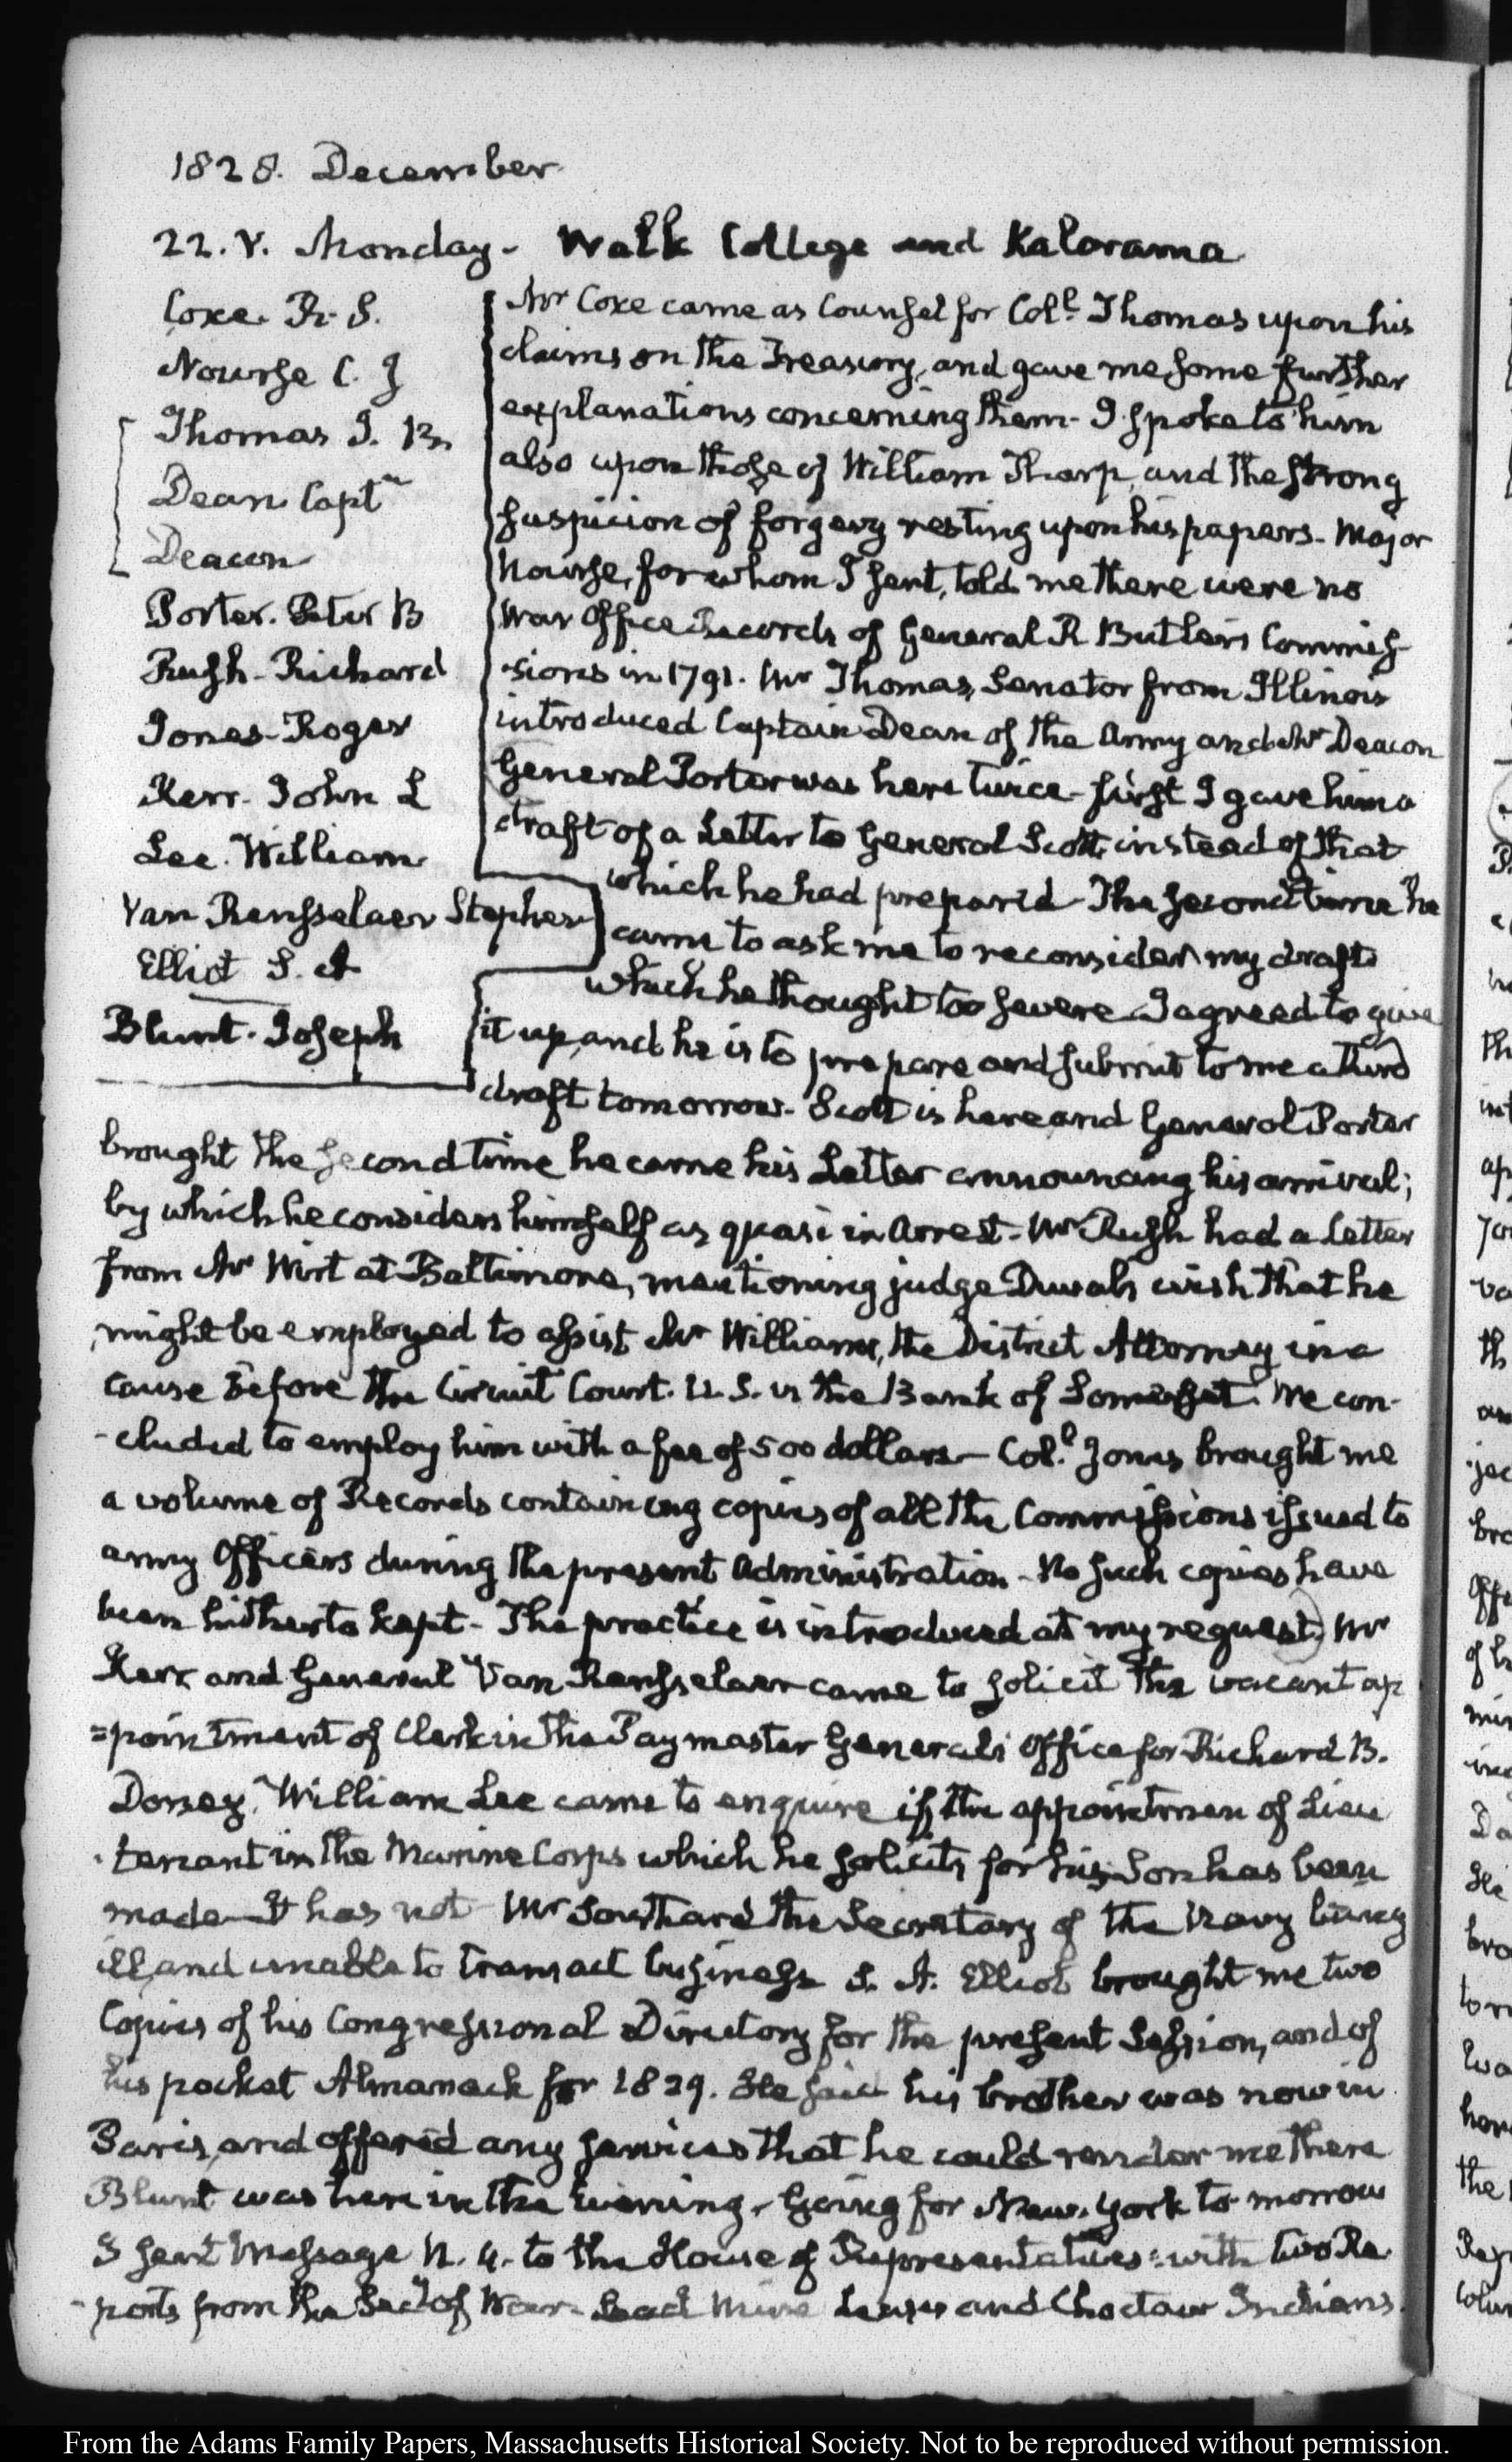 1828. December
22. V. Monday. Walk College and Kalorama
Coxe. R. S.
Nourse C. J
Thomas J. B.
Dean Captn
Deacon
Porter. Peter B
Rush. Richard
Jones. Roger
Kerr. John L
Lee. William
Van Rensselaer Stephen
Elliot S. A
Blunt. Joseph
Mr Coxe came as Counsel for Coll. Thomas upon his
claims on the Treasury, and gave me some further
explanations concerning them. I spoke to him
also upon those of William Tharp, and the strong
suspicion of forgery resting upon his papers. Major
Nourse, for whom I sent, told me there were no
War Office Records of General R Butler's Commis-
-sions in 1791. Mr Thomas, Senator from Illinois
introduced Captain Dean of the Army and Mr Deacon
General Porter was here twice. first I gave him a
draft of a Letter to General Scott, instead of that
which he had prepared. The second time he
came to ask me to reconsider my draft
which he thought too severe. I agreed to give
it up, and he is to prepare and submit to me a third
draft tomorrow. Scott is here and General Porter
brought the second time he came his Letter announcing his arrival;
by which he considers himself as quasi in Arrest. Mr Rush had a Letter
from Mr Wirt at Baltimore, mentioning judge Duvals wish that he
might be employed to assist Mr Williams, the District Attorney in a
cause before the Circuit Court. U. S. vs the Bank of Somerset. We con-
-cluded to employ him with a fee of 500 dollars. Coll. Jones brought me
a volume of Records containing copies of all the Commissions issued to
army Officers during the present Administration. No such copies have
been hitherto kept. The practice is introduced at my request. Mr
Kerr and General Van Rensselaer came to solicit the vacant ap
=pointment of Clerk in the Paymaster General's Office for Richard B.
Dorsey. William Lee came to enquire if the appointmen of Lieu
-tenant in the Marine Corps which he solicits for his Son has been
made. It has not. Mr Southard the Secretary of the Navy being
ill, and unable to transact business. S. A. Elliot brought me two
Copies of his Congressional Directory for the present Session, and of
his pocket Almanack for 1829. He said his brother was now in
Paris, and offered any services that he could render me there
Blunt was here in the Evening. Going for New-York to-morrow
I sent Message N. 4. to the House of Representatives: with two Re
-ports from the Secy of War. Lead Mine Leases and Choctaw Indians.
From the Adams Family Papers, Massachusetts Historical Society. Not to be reproduced without permission.